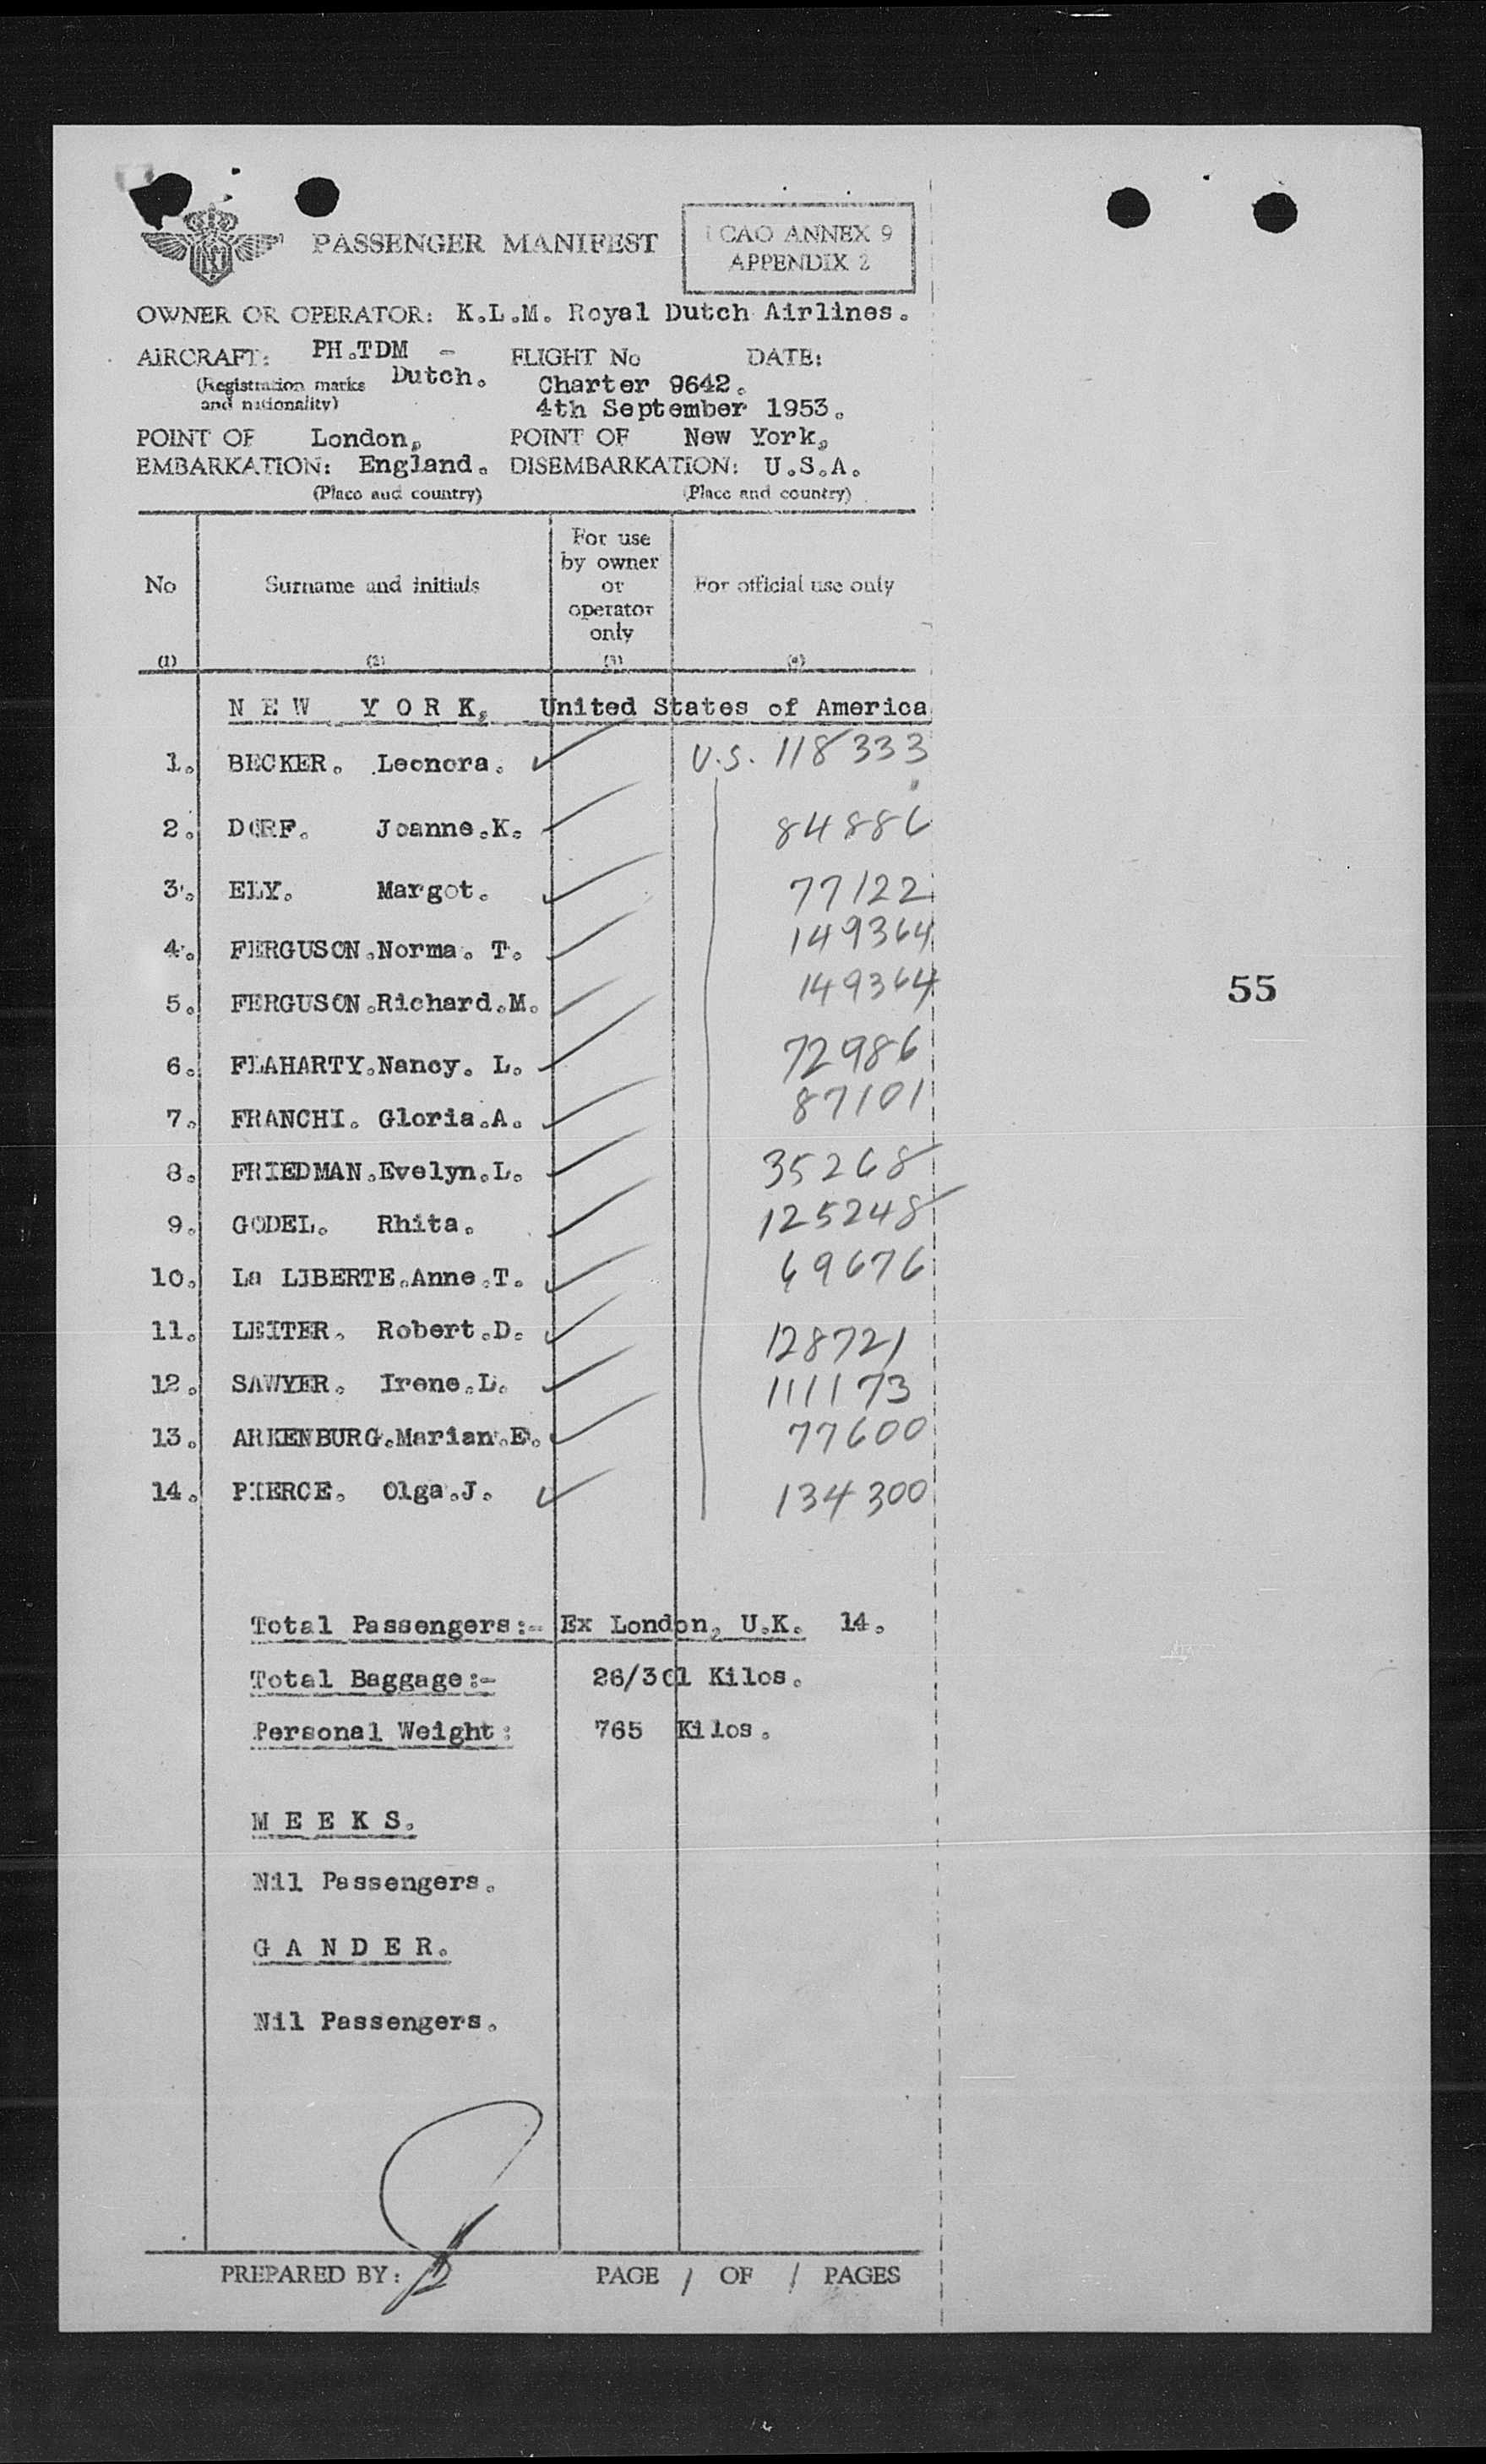 PASSENGER MANIFEST
ICAO ANNEX 9
APPENDIX 2
OWNER OR OPERATOR: K.L.M. Royal Dutch Airlines.
AIRCRAFT: PH.TDM - Dutch.
(Registration marks and nationality)
FLIGHT No DATE:
Charter 9642.
4th September 1953.
POINT OF EMBARKATION: London, England.
(Place and country)
POINT OF DISEMBARKATION: New York, U.S.A.
(Place and country)
No Surname and initials For use by owner or operator only For official use only
(1) (2) (3) (4)
N E W Y O R K, United States of America
1. BECKER. Leonora. U.S. 118333
2. DORF. Joanne.K. 84886
3. ELY. Margot. 77122
4. FERGUSON.Norma. T. 149364
5. FERGUSON.Richard.M. 149364
6. FLAHARTY.Nancy. L. 72986
7. FRANCHI. Gloria.A. 87101
8. FRIEDMAN.Evelyn.L. 35268
9. GODEL. Rhita. 125248
10. La LIBERTE.Anne.T. 69676
11. LEITER. Robert.D. 128721
12. SAWYER. Irene.L. 111173
13. ARKENBURG.Marian.E. 77600
14. PIERCE. Olga.J. 134300
55
Total Passengers:- Ex London, U.K. 14.
Total Baggage:- 26/301 Kilos.
Personal Weight: 765 Kilos.
M E E K S.
Nil Passengers.
G A N D E R.
Nil Passengers.
PREPARED BY: PAGE 1 OF 1 PAGES